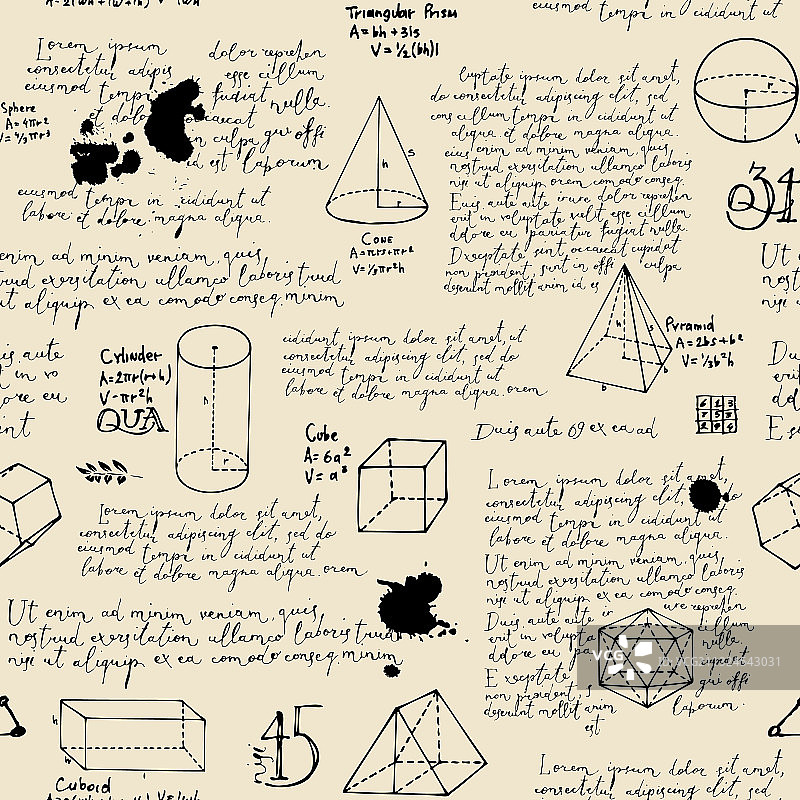 tempor in cididunt ut
Triangular Prism
A= bh +3ls
V= ½(bh)l
Lorem ipsum
consectetur adipis
eiusmod temp
et dolo
dolor reprehen
esse cillum
fugiat nulla.
occaecat
in culpa qui offi
id est laborum
Sphere
A= 4πr²
V= ⁴/₃πr³
eiusmod tempr in cididunt ut
labore et dolore magna aliqua.
enim ad minim veniam, quis,
trud exersitation ullamco laboris trud
ut aliquip ex ea comodo conseq. minim
h
s
r
Cone
A=πrs+πr²
V=⅓πr²h
luptate ipsum dolor sit amet,
do consectetur adipiscing elit, sed
cons cillum tempr in cididunt ut
aliqua. et dolore magna aliqua.
eius enim ad minim veniam, quis,
nostrud exersitation ullamco laboris
nisi ut aliquip orem comodo conseq.
Euis aute aute irure dolor reprehen
erit in voluptate velit esse cillum
dolore eu pariatur fugiat nulla.
Dxceptate sint occaecat cupidat
non proident, sunt in offi culpa
deserunt mollit anim id es
r
34
Ut
Cylinder
A=2πr(r+h)
V=πr²h
QUA
h
r
cididunt ipsum dolor sit amet, ut
consectetur adipiscing elit, sed do
eiusmod tempr in cididunt ut
labore et dolore magna aliqua. orem
h
s
b
b
Pyramid
A=2bs+b²
V=⅓b²h
is aute
in vo
ore eu
int
Cube
A= 6a²
V= a³
Duis aute 69 ex ea ad
Lorem ipsum dolor sit amet,
consectetur adipiscing elit, sed do
eiusmod tempr in cididunt ut
labore et dolore magna aliqua. orem
Ut enim ad minim veniam, quis,
nostrud exersitation ullamco laboris trud
nisi ut aliquip ex ea comodo conseq. minim
Lorem ipsum dolor sit amet,
consectetur adipiscing elit, do
eiusmod tempr in cididunt ut
labore et dolore magna aliqua.
Ut enim ad minim veniam, quis,
nostrud exersitation ullamco laboris
nisi ut aliquip ex ea comodo conseq.
Duis aute aute ir ure reprehen
erit in volupta cillum
dolore eu pa nulla.
Exceptate cupidat
non proident, s qui offi
deserunt mollit anim laborum.
est
VCG
h
Cuboid
nisi
45
Lorem ipsum dolor sit amet,
consectetur adipiscing elit, sed